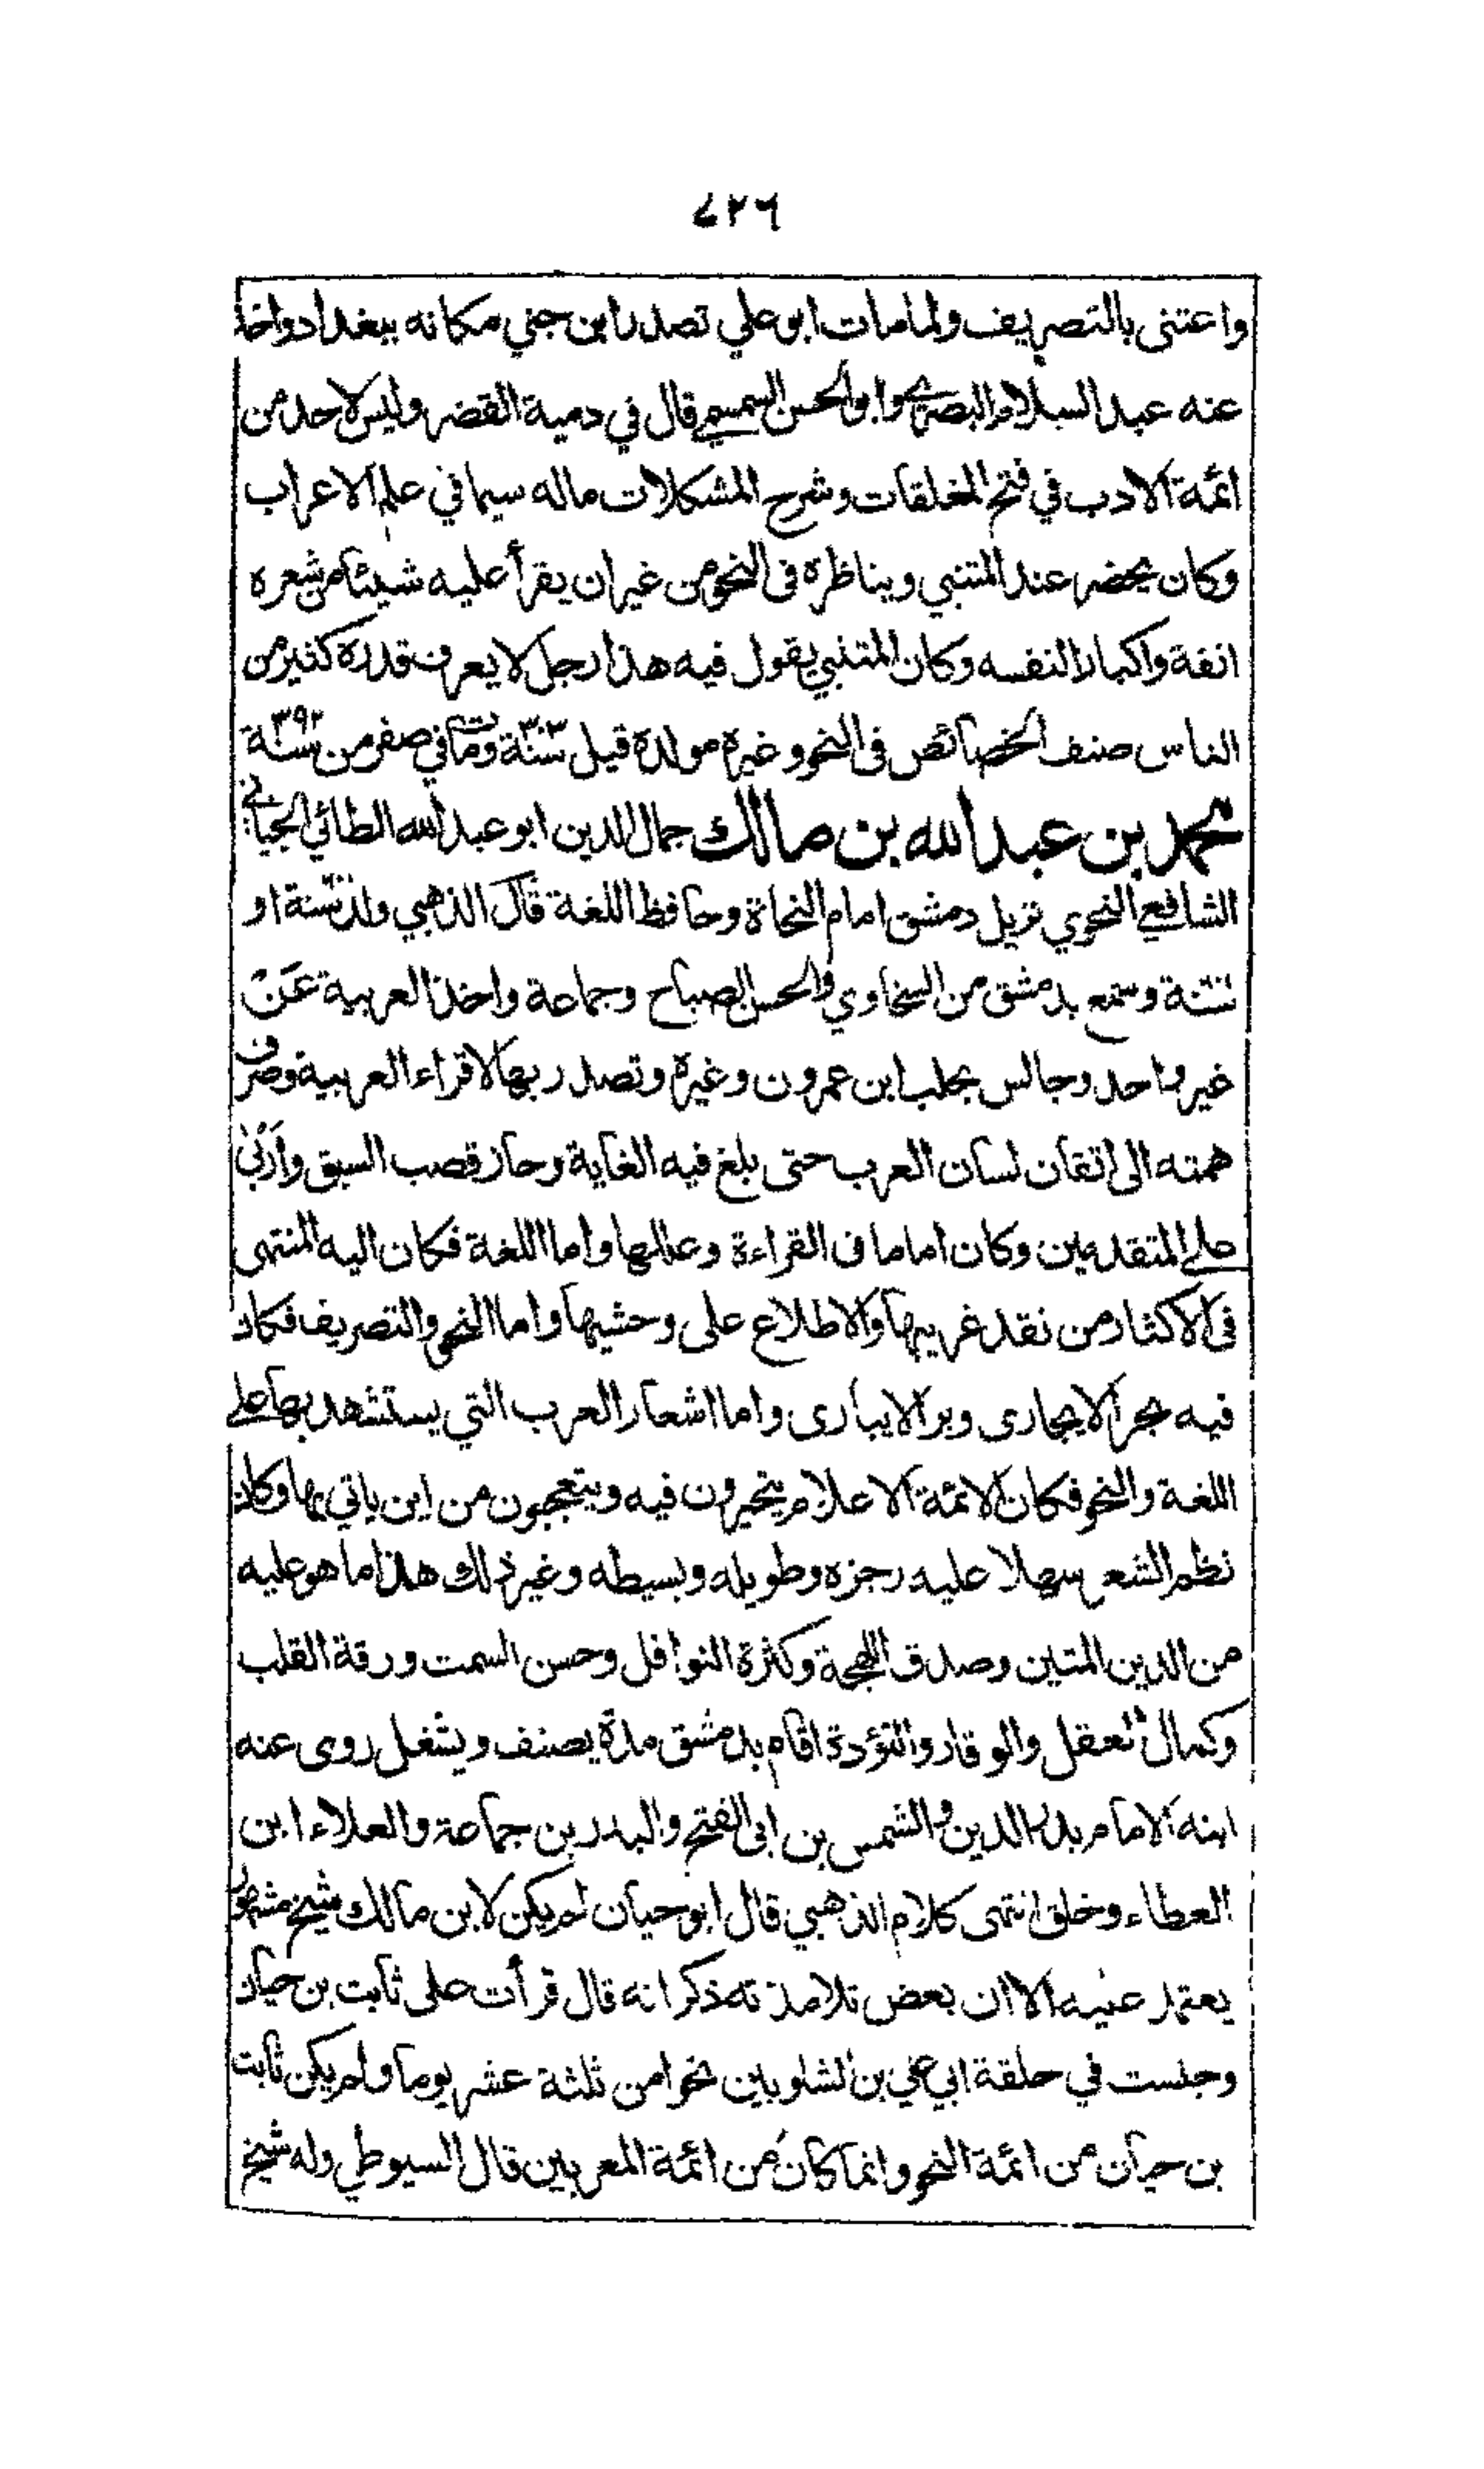 ٤٢٦
واعتنى بالتصريف ولما مات ابو علي تصدر ابن جني مكانه ببغداد واخذ
عنه عبد السلام البصري وابو الحسن السمسمي قال في دمية القصر وليس لاحد من
ائمة الادب في فتح المغلقات وشرح المشكلات ماله سيما في علم الاعراب
وكان يحضر عند المتنبي ويناظره في النحو من غير ان يقرأ عليه شيئا من شعره
انفة واكبارا لنفسه وكان المتنبي يقول فيه هذا رجل لا يعرف قدره كثير من
الناس صنف الخصائص في النحو وغيره مولده قبل سنة ٣٣٠ ومات في صفر من سنة ٣٩٢
محمد بن عبد الله بن مالك جمال الدين ابو عبد الله الطائي الجياني
الشافعي النحوي نزيل دمشق امام النحاة وحافظ اللغة قال الذهبي ولد سنة او
سنة وسمع بدمشق من السخاوي والحسن الصباح وجماعة واخذ العربية عن
غير واحد وجالس بحلب ابن عمرون وغيره وتصدر بها لاقراء العربية وصرف
همته الى اتقان لسان العرب حتى بلغ فيه الغاية وحاز قصب السبق واربى
على المتقدمين وكان اماما في القراءة وعللها واما اللغة فكان اليه المنتهى
في الاكثار من نقد غريبها والاطلاع على وحشيها واما النحو والتصريف فكان
فيه بحر الايجارى وبر الايبارى واما اشعار العرب التي يستشهد بها على
اللغة والنحو فكان الائمة الاعلام يتحيرون فيه ويتعجبون من اين ياتي بها وكان
نظم الشعر سهلا عليه رجزه وطويله وبسيطه وغير ذلك هذا ما هو عليه
من الدين المتين وصدق اللهجة وكثرة النوافل وحسن السمت ورقة القلب
وكمال العقل والوقار والتؤدة اقام بدمشق مدة يصنف ويشغل روى عنه
ابنه الامام بدر الدين والشمس بن ابى الفتح والبدر بن جماعة والعلاء ابن
العطاء وخلق انتهى كلام الذهبي قال ابو حيان لم يكن لابن مالك شيخ مشهور
يعتمد عليه الا ان بعض تلامذته ذكر انه قال قرأت على ثابت بن حيان
وجلست في حلقة ابي علي بن الشلوبين نحوا من ثلثة عشر يوما ولم يكن ثابت
بن حيان من ائمة النحو وانما كان من ائمة المعربين قال السيوطي وله شيخ